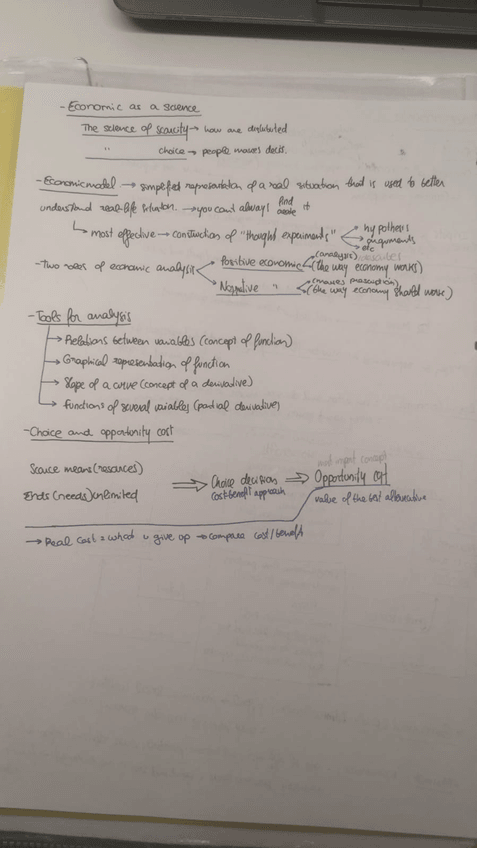 - Economic as a science
The science of scarcity → how are distributed
" choice → people makes decis.
- Economic model → simplified representation of a real situation that is used to better
understand real-life situation. → you can't always find
create it
↳ most effective → construction of "thought experiments" hypothesis
arguments
etc
- Two roles of economic analysis Positive economic (analysis)
(the way economy works)
Normative " (makes prescription)
(the way economy should work)
- Tools for analysis
→ Relations between variables (concept of function)
→ Graphical representation of function
→ Slope of a curve (concept of a derivative)
→ Functions of several variables (partial derivative)
- Choice and opportunity cost
most impnt concept
Scarce means (resources)
⇒ Choice decision ⇒ Opportunity cost
cost-benefit approach
Ends (needs) unlimited
value of the best alternative
→ Real cost = what u give up → compare cost/benefit